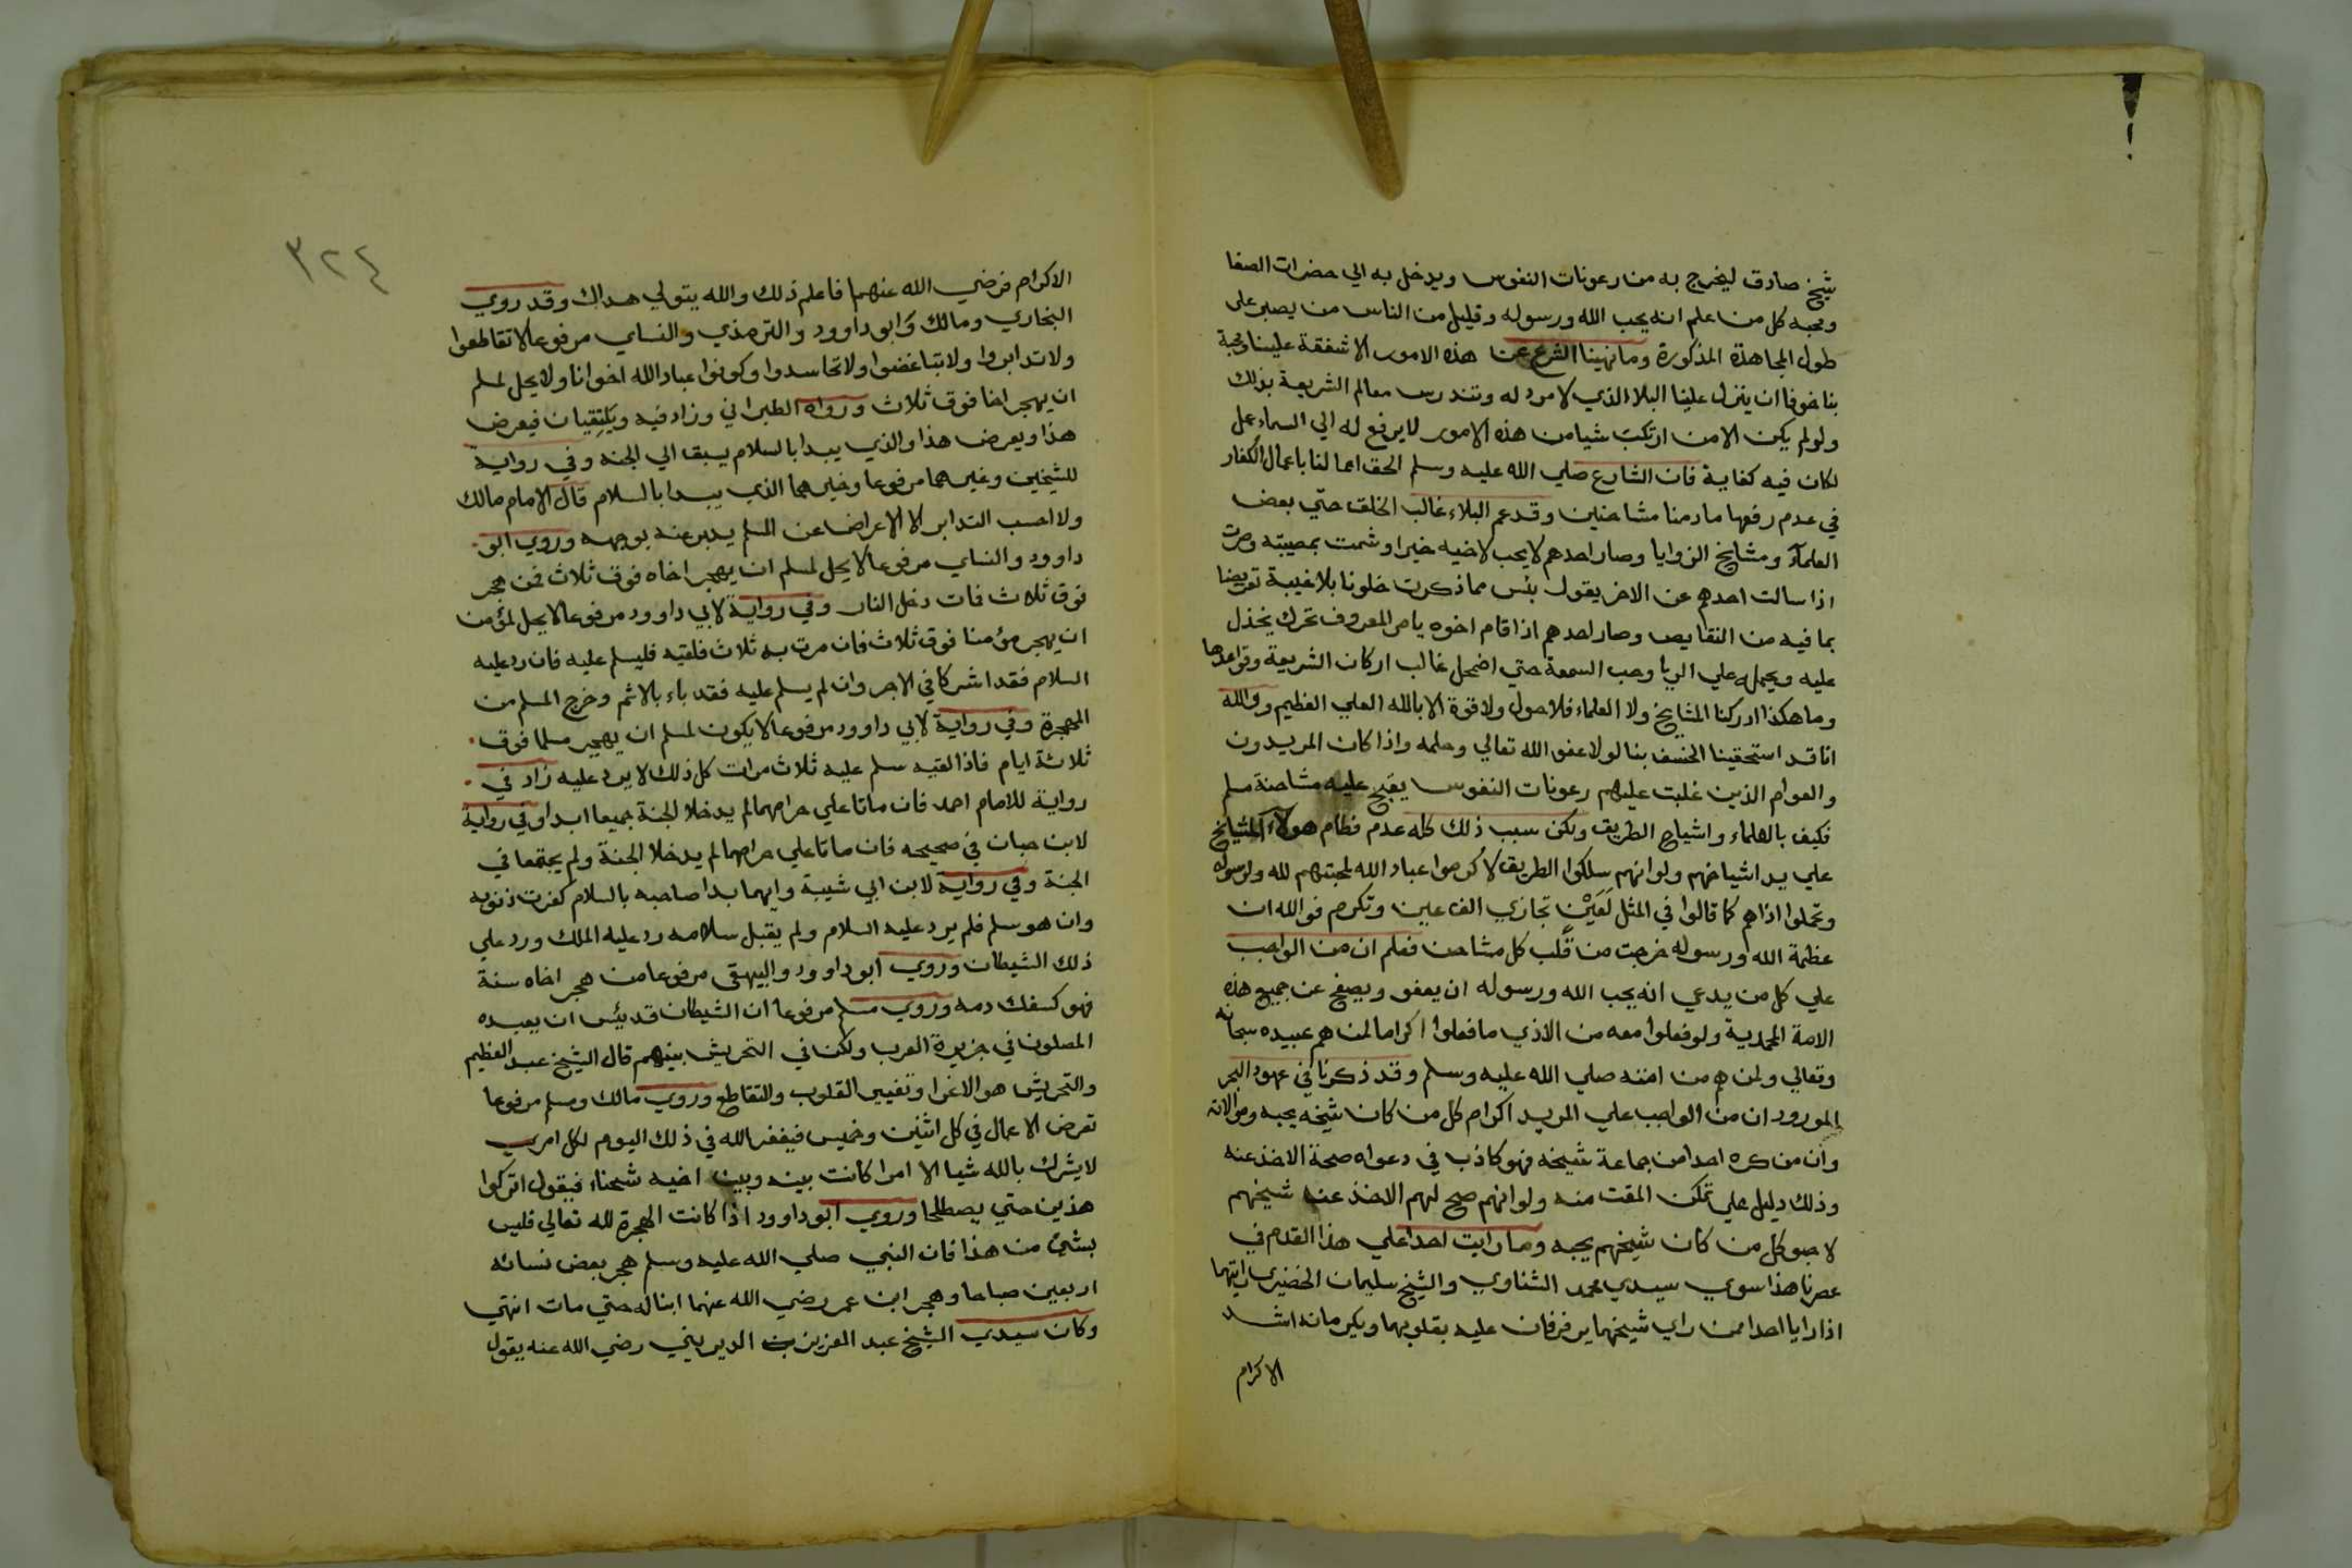 شيخ صادق ليخرج به من رعونات النفوس ويدخل به الي حضرات الصفا
ومحبه كل من علم انه يحب الله ورسوله وقليل من الناس من يصبر علي
طول المجاهدة المذكورة وما نهينا الشرع عن هذه الامور الا شفقة علينا ومحبة
بنا خوفا ان ينزل علينا البلا الذي لا مرد له وتندرس معالم الشريعة بذلك
ولو لم يكن الا من ارتكب شيا من هذه الامور لا يرفع له الي السماء عمل
لكان فيه كفاية فان الشارع صلي الله عليه وسلم الحق اعمالنا باعمال الكفار
في عدم رفعها ما دمنا مشاحنين وقد عم البلاء غالب الخلق حتي بعض
العلماء ومشايخ الزوايا وصار احدهم لا يحب لاخيه خيرا وشمت بمصيبته وصرت
اذا سالت احدهم عن الاخر يقول بئس مما ذكرت خلونا بلا غيبة تعريضا
بما فيه من النقايص وصار احدهم اذا قام اخوه يامر المعروف تحرك يخذل
عليه ويحمله علي الريا وحب السمعة حتي اضمحل غالب اركان الشريعة وقواعدها
وما هكذا ادركنا المشايخ ولا العلماء فلا حول ولا قوة الا بالله العلي العظيم ووالله
انا قد استحقينا الخسف بنا لولا عفو الله تعالي وحلمه واذا كان المريدون
والعوام الذين غلبت عليهم رعونات النفوس يقبح عليه مشاحنة مسلم
فكيف بالعلماء واشياخ الطريق ولكن سبب ذلك كله عدم فطام هولاء المشايخ
علي يد اشياخهم ولو انهم سلكوا الطريق لاكرموا عباد الله لمحبتهم لله ولرسوله
وتحملوا اذاهم كما قالوا في المثل لعين تجازي الف عين وتكرم فوالله ان
عظمة الله ورسوله خرجت من قلب كل مشاحن فعلم ان من الواجب
علي كل من يدعي انه يحب الله ورسوله ان يعفو ويصفح عن جميع هذه
الامة المحمدية ولو فعلوا معه من الاذي ما فعلوا اكراما لمن هم عبيده سبحانه
وتعالي ولمن هم من امته صلي الله عليه وسلم وقد ذكرنا في عهود البحر
المورود ان من الواجب علي المريد اكرام كل من كان شيخه يحبه وموالاته
وان من كره احدا من جماعة شيخه فهو كاذب في دعواه صحة الاخذ عنه
وذلك دليل علي تمكن المقت منه ولو انهم صح لهم الاخذ عن شيخهم
لاحبو كل من كان شيخهم يحبه وما رايت احدا علي هذا القدم في
عصرنا هذا سوي سيدي محمد الشناوي والشيخ سليمان الخضيري رايتهما
اذا رايا احدا ممن راي شيخهما يرفرفان عليه بقلوبهما ويكرمانه اشد
الاكرام
٣٢٤
الاكرام فرضي الله عنهما فاعلم ذلك والله يتولي هداك وقد روي
البخاري ومالك وابو داوود والترمذي والنساي مرفوعا لا تقاطعوا
ولا تدابروا ولا تباغضوا ولا تحاسدوا وكونوا عباد الله اخوانا ولا يحل لمسلم
ان يهجر اخا فوق ثلاث ورواه الطبراني وزاد فيه ويلتقيان فيعرض
هذا ويعرض هذا والذي يبدا بالسلام يسبق الي الجنه وفي رواية
للشيخين وغيرهما مرفوعا وخيرهما الذي يبدا بالسلام قال الامام مالك
ولا احسب التدابر الا الاعراض عن المسلم يدبر عنه بوجهه وروي ابو
داوود والنساي مرفوعا لا يحل لمسلم ان يهجر اخاه فوق ثلاث فمن هجر
فوق ثلاث فمات دخل النار وفي رواية لابي داوود مرفوعا لا يحل لمؤمن
ان يهجر مؤمنا فوق ثلاث فان مرت به ثلاث فلقيه فليسلم عليه فان رد عليه
السلام فقد اشتركا في الاجر وان لم يسلم عليه فقد باء بالاثم وخرج المسلم من
الهجرة وفي رواية لابي داوود مرفوعا لا يكون لمسلم ان يهجر مسلما فوق
ثلاثة ايام فاذا لقيه سلم عليه ثلاث مرات كل ذلك لا يرد عليه زاد في
رواية للامام احمد فان ماتا علي صرامهما لم يدخلا الجنة جميعا ابدا وفي رواية
لابن حبان في صحيحه فان ماتا علي صرامهما لم يدخلا الجنة ولم يجتمعا في
الجنة وفي رواية لابن ابي شيبة وايهما بدا صاحبه بالسلام كفرت ذنوبه
وان هو سلم فلم يرد عليه السلام ولم يقبل سلامه رد عليه الملك ورد علي
ذلك الشيطان وروي ابو داوود والبيهقي مرفوعا من هجر اخاه سنة
فهو كسفك دمه وروي مسلم مرفوعا ان الشيطان قد يئس ان يعبده
المصلون في جزيرة العرب ولكن في التحريش بينهم قال الشيخ عبد العظيم
والتحريش هو الاغرا وتغيير القلوب والتقاطع وروي مالك ومسلم مرفوعا
تعرض الاعمال في كل اثنين وخميس فيغفر الله في ذلك اليوم لكل امري
لا يشرك بالله شيا الا امرا كانت بينه وبين اخيه شحناء فيقول اتركوا
هذين حتي يصطلحا وروي ابو داوود اذا كانت الهجرة لله تعالي فليس
بشئ من هذا فان النبي صلي الله عليه وسلم هجر بعض نسائه
اربعين صباحا وهجر ابن عمر رضي الله عنهما ابنا له حتي مات انتهي
وكان سيدي الشيخ عبد العزيز الديريني رضي الله عنه يقول